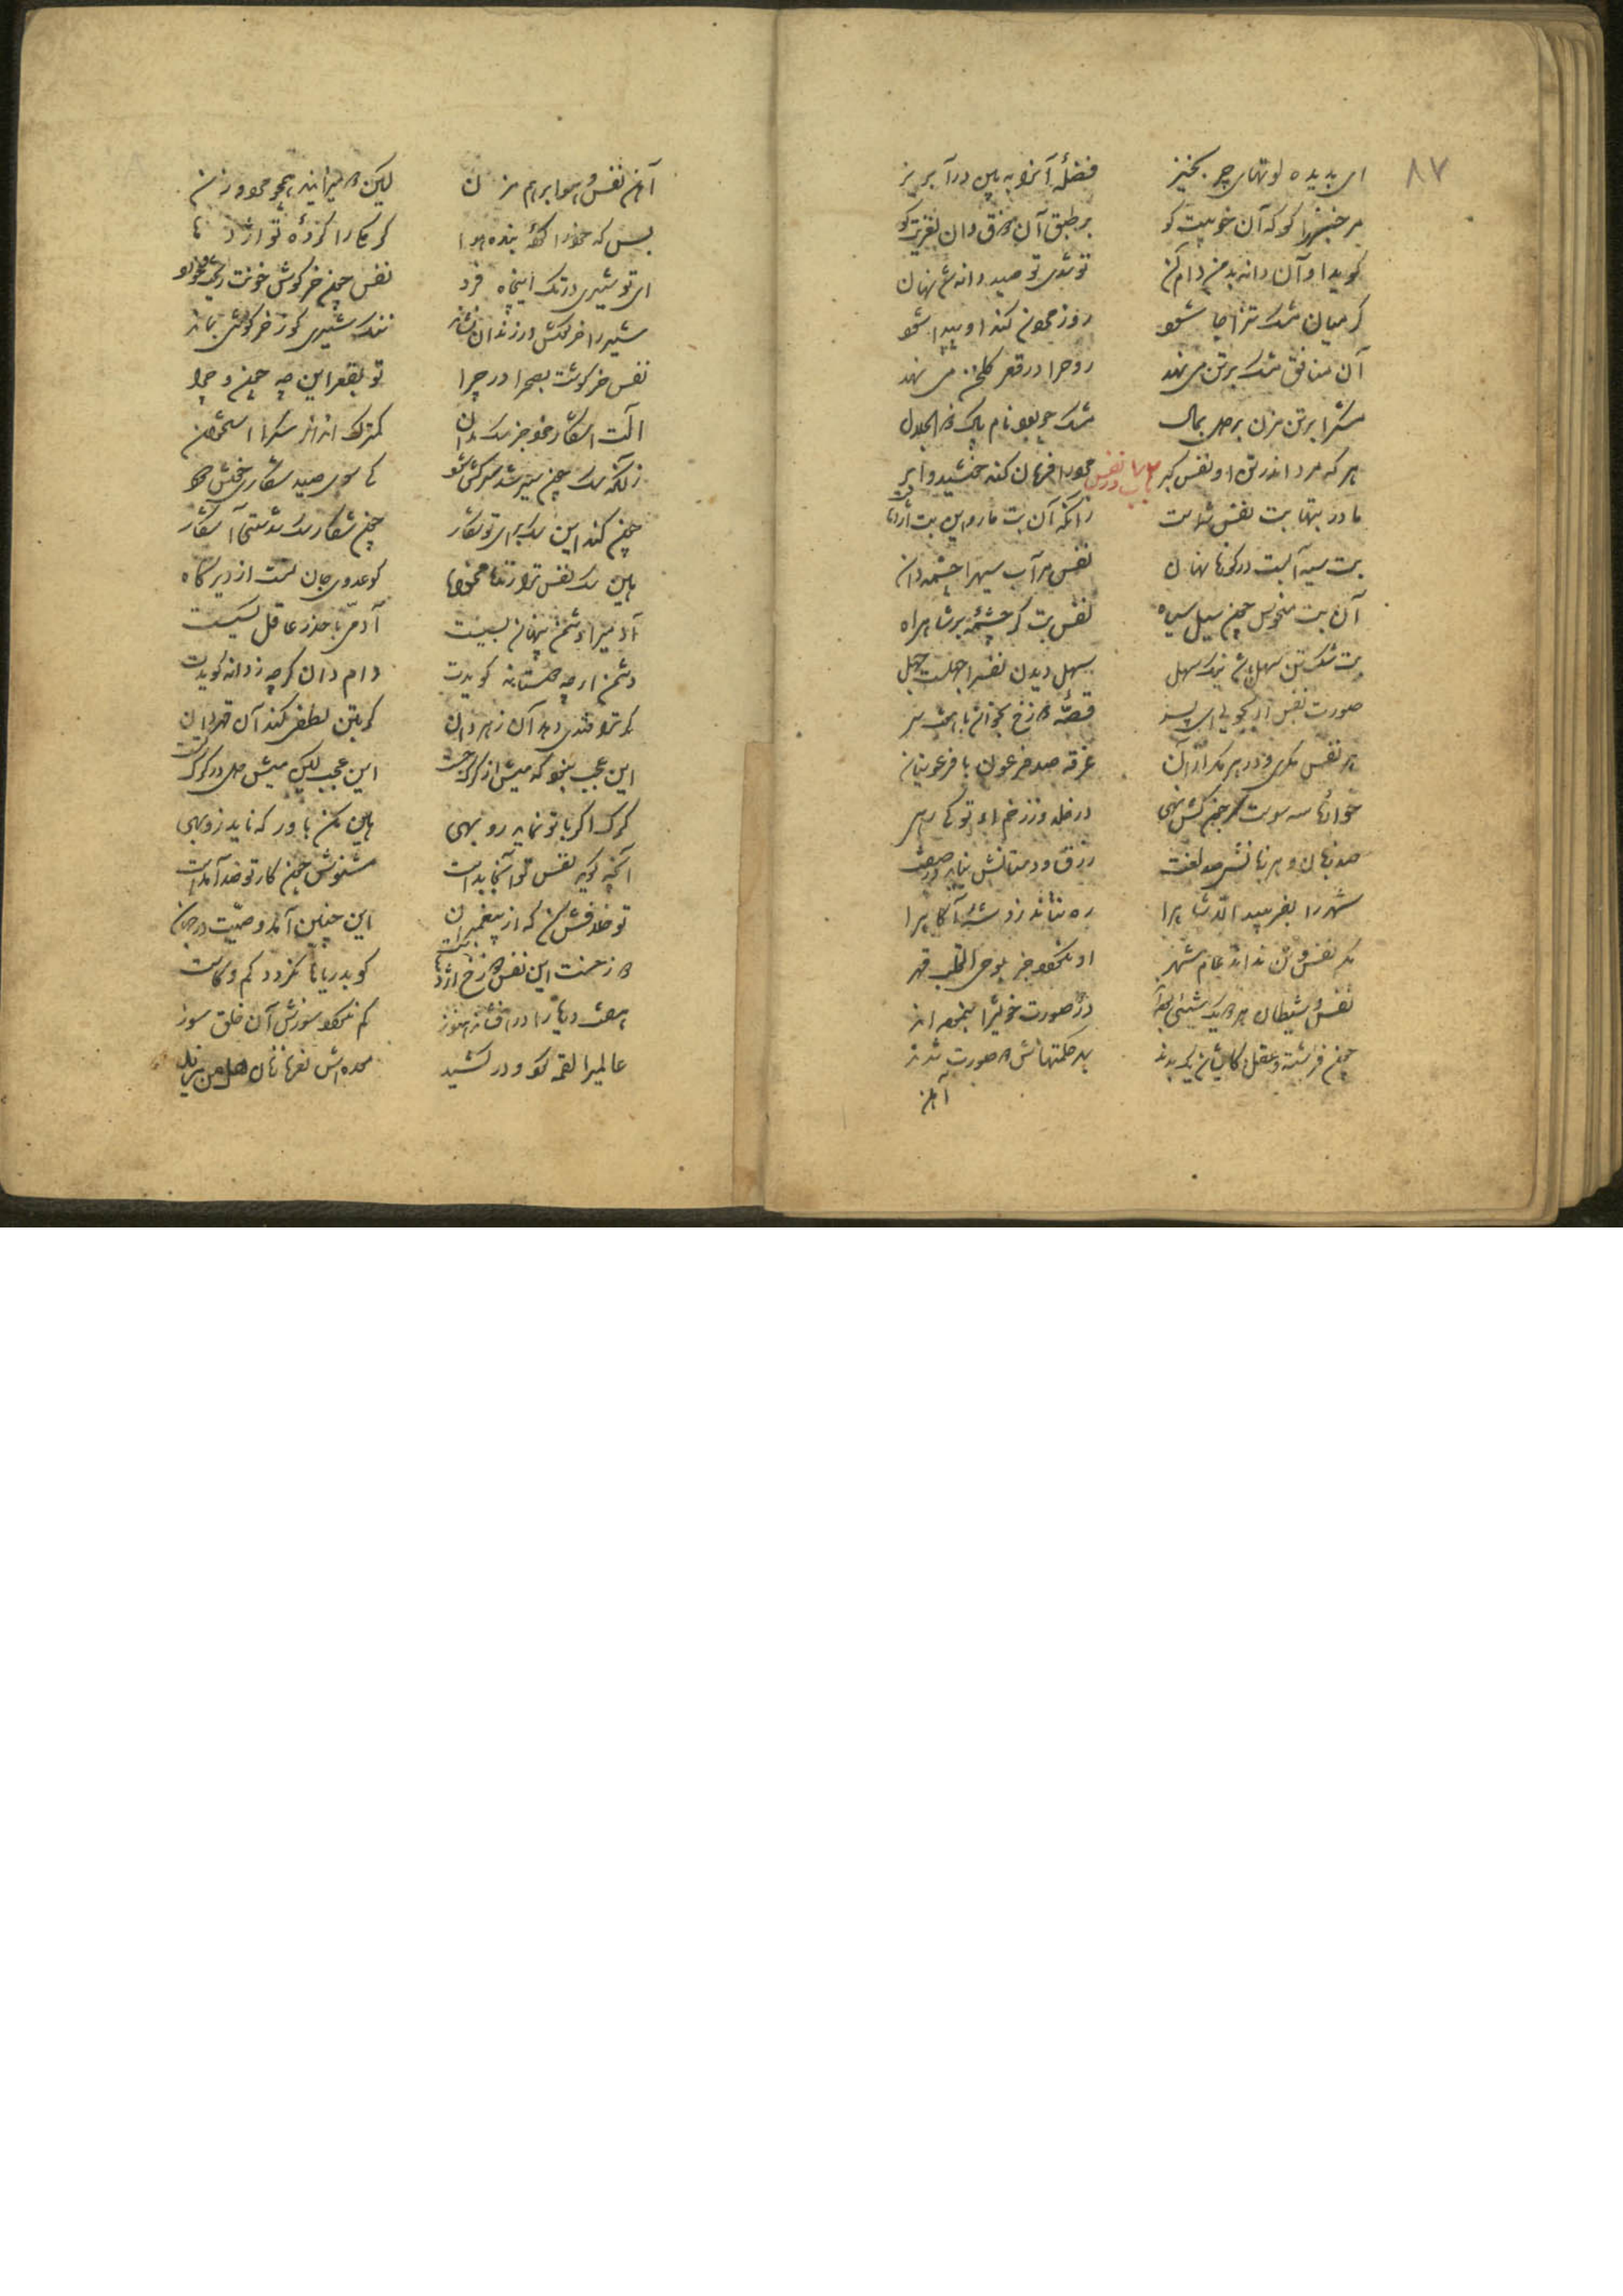 ۸۷
ای بدیده لوتهای چرب خیز فضلهٔ آنرا ببین در آب ریز
مر خبث را گو که آن خوبیت کو بر طبق آن ذوق و آن نغزیت کو
گوید او آن دانه بد من دام آن تو شدی تو صید دانه شد نهان
گر میان مشک تن را جا شود روز مردن گند او پیدا شود
آن منافق مشک بر تن می نهد روح را در قعر گلخن می نهد
مشک را بر تن مزن بر دل بمال مشک چه بود نام پاک ذوالجلال
باب در نفس
هر که مرد اندر تن او نفس گبر مرورا فرمان کند خورشید و ابر
مادر بتها بت نفس شماست زانکه آن بت مار و این بت اژدهاست
بت سیه آبست در کوزه نهان نفس مر آب سیه را چشمه دان
آن بت منحوت چون سیل سیاه نفس بتگر چشمهٔ بر شاه راه
بت شکستن سهل باشد نیک سهل سهل دیدن نفس را جهلست جهل
صورت نفس ار بجویی ای پسر قصهٔ دوزخ بخوان با هفت سر
هر نفس مکری و در هر مکر از آن غرقه صد فرعون با فرعونیان
در خلد و زخم او تو کی رهی
صد زبان و هر زبانش صد لغت زرق و دستانش نیاید در صفت
شهر را بفریبد الا شاه را ره نتاند زد شه آگاه را
مکر نفس و تن نداند عام شهر او نگردد جز بوحی القلب قهر
نفس و شیطان هر دو یک تن بوده اند در دو صورت خویش را بنموده اند
چون فرشته و عقل کایشان یک بدند بهر حکمتهاش دو صورت شدند
آهن
آهن نفس و هوا بر هم مزن لیک این دو میزایند همچو مرد و زن
بس که خود را کردهٔ بنده هوا کرمکی را کردهٔ تو اژدها
ای تو شیری در تک این چاه فرد نفس چون خرگوش خونت ریخت و خورد
شیر را خرگوش در زندان نشاند ننگ شیری کو ز خرگوشی بماند
نفس خرگوشت بصحرا در چرا تو بقعر این چه چون و چرا
آلت اشکار خود جز سگ مدان کمترک انداز سگ را استخوان
زانکه سگ چون سیر شد سرکش شود کی سوی صید و شکاری خوش دود
چون کند این سگ برای تو شکار چون شکار سگ شدستی آشکار
هین سگ نفس ترا زنده مخواه کو عدوی جان تست از دیرگاه
آدمی را دشمن پنهان بسیست آدمی با حذر عاقل کسیست
دشمن ار چه دوستانه گویدت دام دان گر چه ز دانه گویدت
گر ترا قندی دهد آن زهر دان گر بتن لطفی کند آن قهر دان
این عجب نبود که میش از گرگ جست این عجب کین میش دل در گرگ بست
گرگ اگر با تو نماید روبهی هین مکن باور که ناید زو بهی
آنچه گوید نفس تو اینجا بدست مشنوش چون کار او ضد آمدست
تو خلافش کن که از پیغمبران این چنین آمد وصیت در جهان
دوزخست این نفس و دوزخ اژدهاست کو بدریاها نگردد کم و کاست
هفت دریا را در آشامد هنوز کم نگردد سوزش آن خلق سوز
عالمی را لقمه کرد و در کشید معده اش نعره زنان هل من مزید